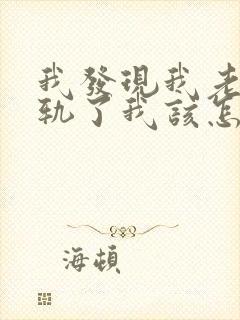 我發現我老
軌了我該怎
海頓